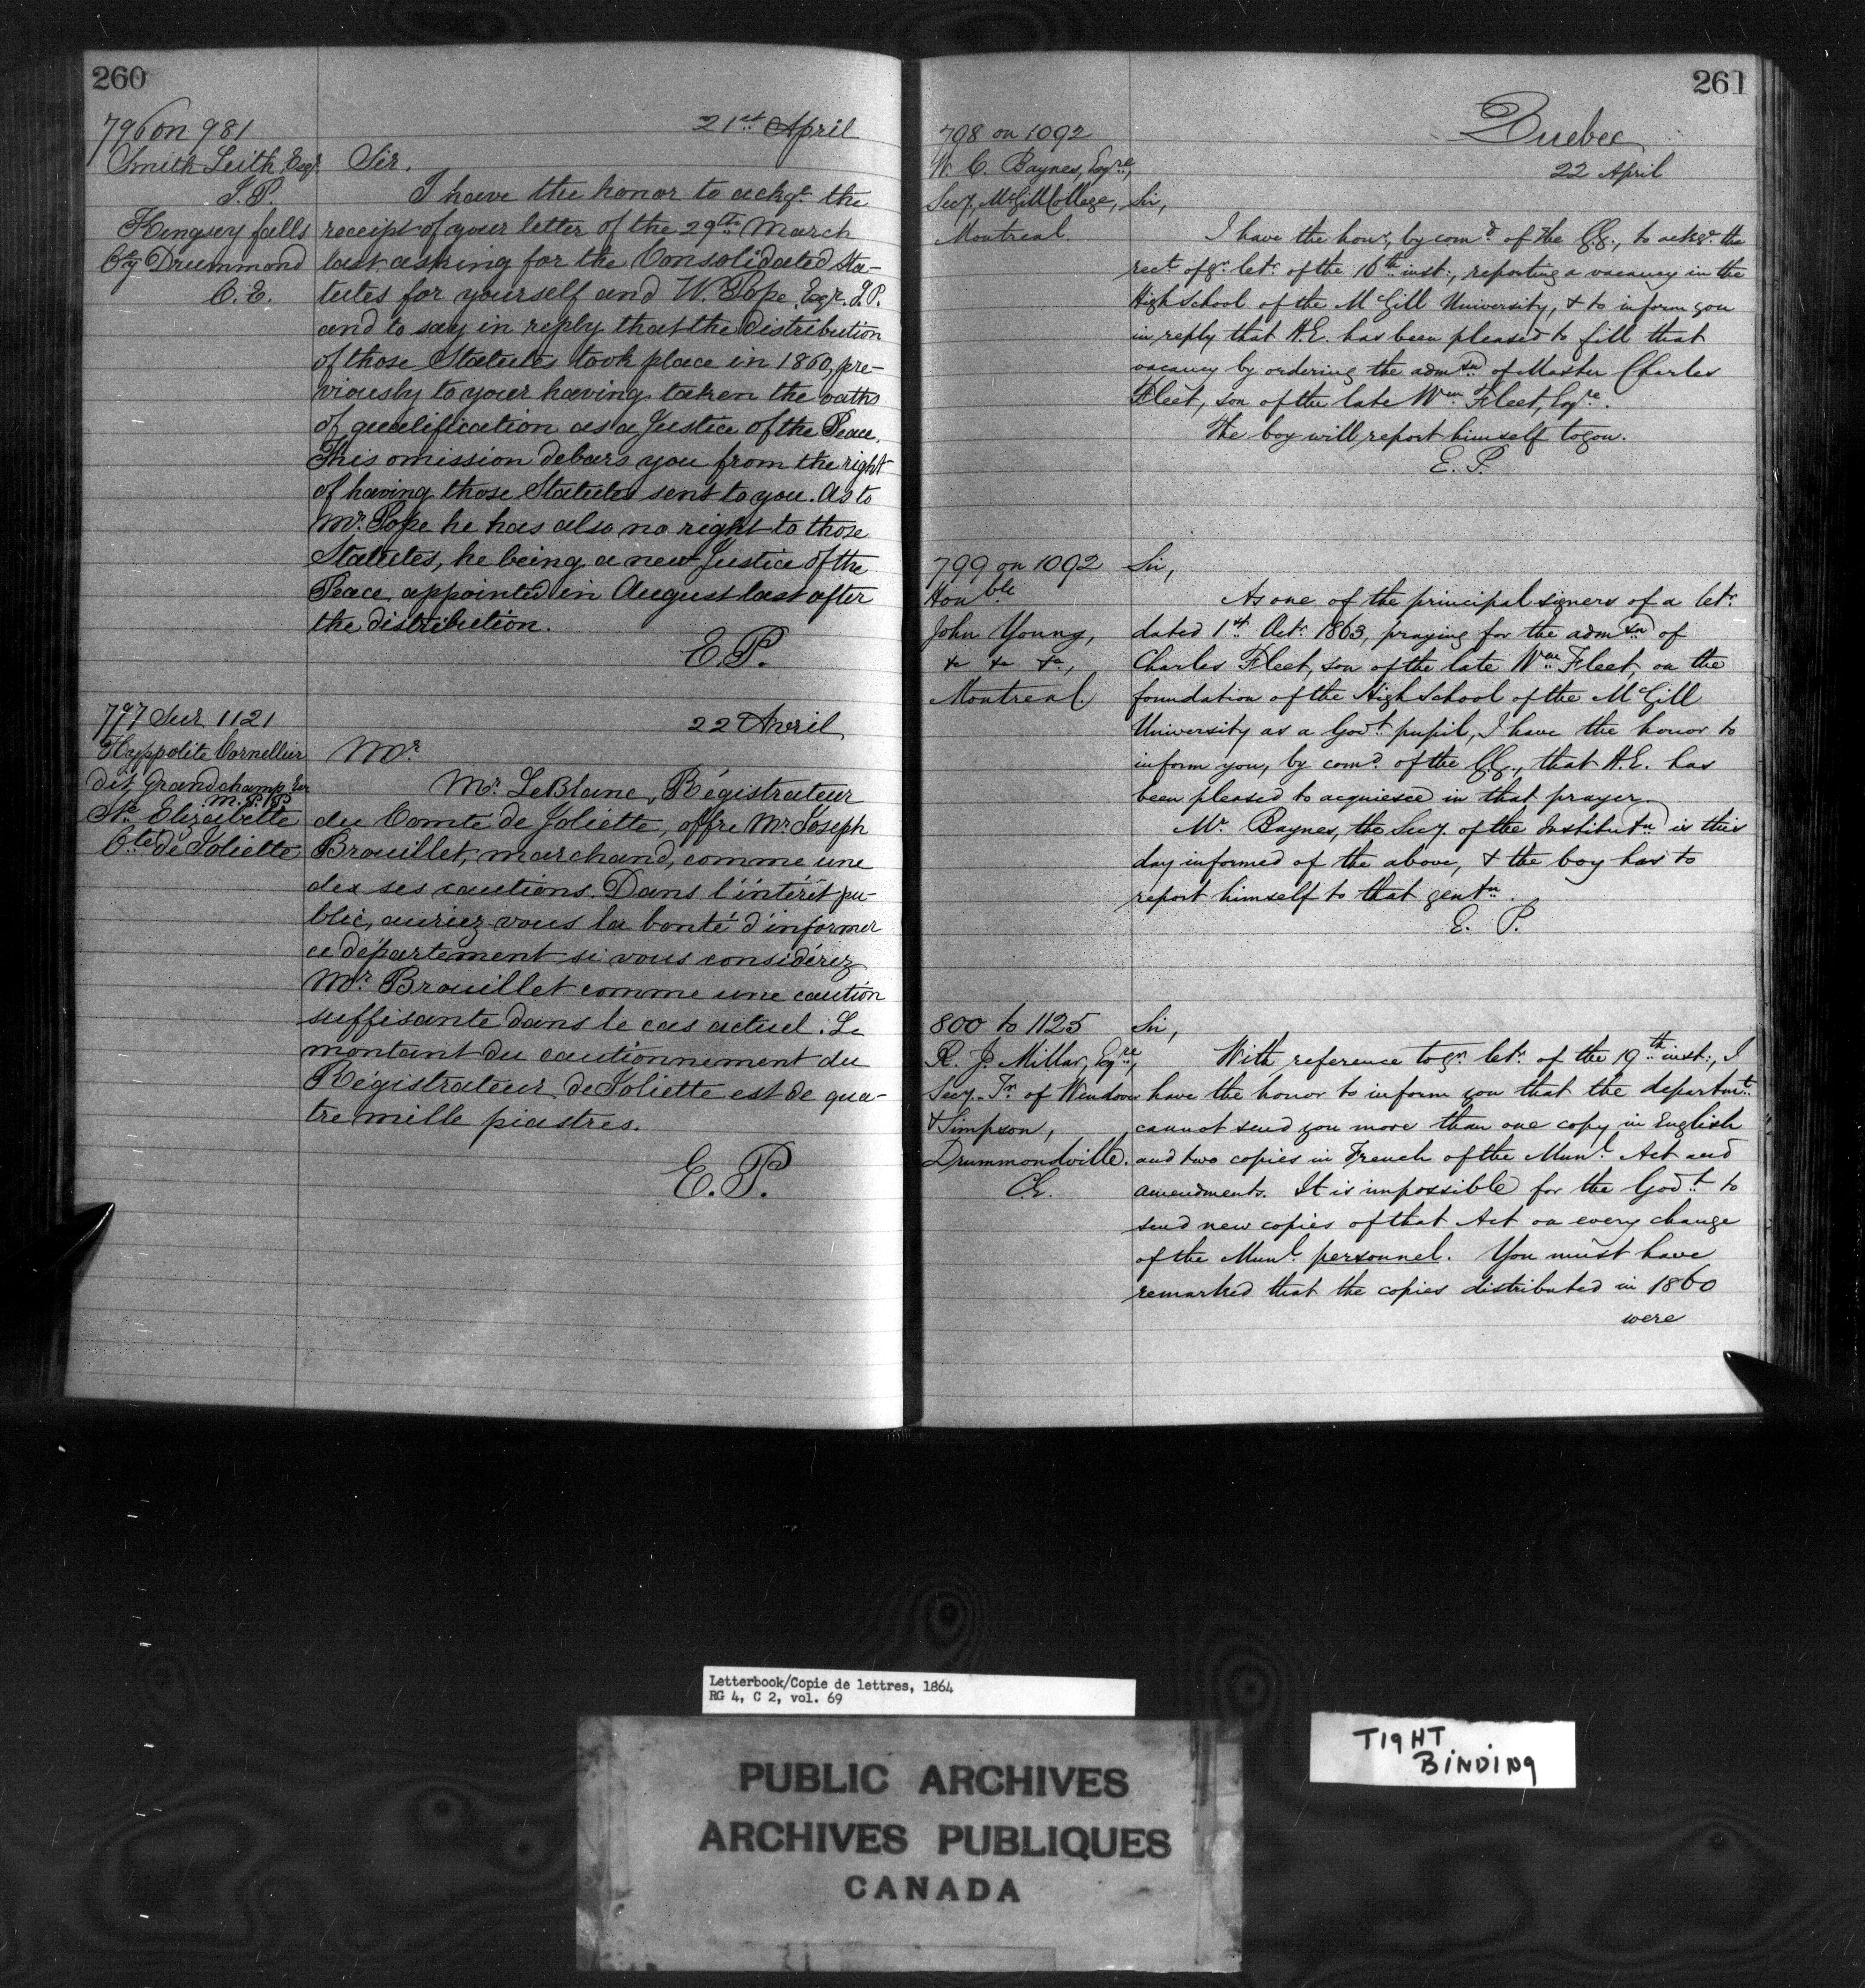 260
796 on 981
21st April
Smith Leith, Esqr
J.P.
Kingsey falls
Cty Drummond
C.E.
Sir,
I have the honor to ackge the
receipt of your letter of the 29th March
last asking for the Consolidated Sta-
tutes for yourself and W. Pope, Esqr. J.P.
and to say in reply that the distribution
of those Statutes took place in 1860, pre-
viously to your having taken the oaths
of qualification as a Justice of the Peace.
This omission debars you from the right
of having those Statutes sent to you. As to
Mr. Pope he has also no right to those
Statutes, he being a new Justice of the
Peace appointed in August last after
the distribution.
E.P.
797 Sur 1121
22 Avril
Hyppolite Cornellier
dit Grandchamp Er
M.P.P.
Ste Elizabette
Cté de Joliette
Mr
Mr. LeBlanc, Régistrateur
du Comté de Joliette, offre Mr Joseph
Brouillet, marchand, comme une
des ses cautions. Dans l'intérêt pu-
blic, auriez vous la bonté d'informer
ce département si vous considérez
Mr. Brouillet comme une caution
suffisante dans le cas actuel. Le
montant du cautionnement du
Régistrateur de Joliette est de qua-
tre mille piastres.
E.P.
261
Quebec
22 April
798 on 1092
W. C. Baynes, Esqre,
Secy. McGill College,
Montreal.
Sir,
I have the honr, by comd of the G.G., to ackge the
rect of yr letr of the 16th inst:, reporting a vacancy in the
High School of the McGill University, & to inform you
in reply that H.E. has been pleased to fill that
vacancy by ordering the admson of Master Charles
Fleet, son of the late Wm Fleet, Esqre.
The boy will report himself to you.
E. P.
799 on 1092
Honble
John Young,
&c &c &c,
Montreal.
Sir,
As one of the principal signers of a letr
dated 1st Octr 1863, praying for the admson of
Charles Fleet, son of the late Wm Fleet, on the
foundation of the High School of the McGill
University as a Govt pupil, I have the honor to
inform you, by comd of the G.G., that H.E. has
been pleased to acquiesce in that prayer.
Mr. Baynes, the Secy. of the Institutn is this
day informed of the above, & the boy has to
report himself to that gentn.
E. P.
800 to 1125
R. J. Millar, Esqre,
Secy. Tr. of Wendover
& Simpson,
Drummondville.
C.E.
Sir,
With reference to yr letr of the 19th inst:, I
have the honor to inform you that the departmt
cannot send you more than one copy in English
and two copies in French of the Munl Act and
amendments. It is impossible for the Govt to
send new copies of that Act on every change
of the Munl personnel. You must have
remarked that the copies distributed in 1860
were
Letterbook/Copie de lettres, 1864
RG 4, C 2, vol. 69
TIGHT
BINDING
PUBLIC ARCHIVES
ARCHIVES PUBLIQUES
CANADA